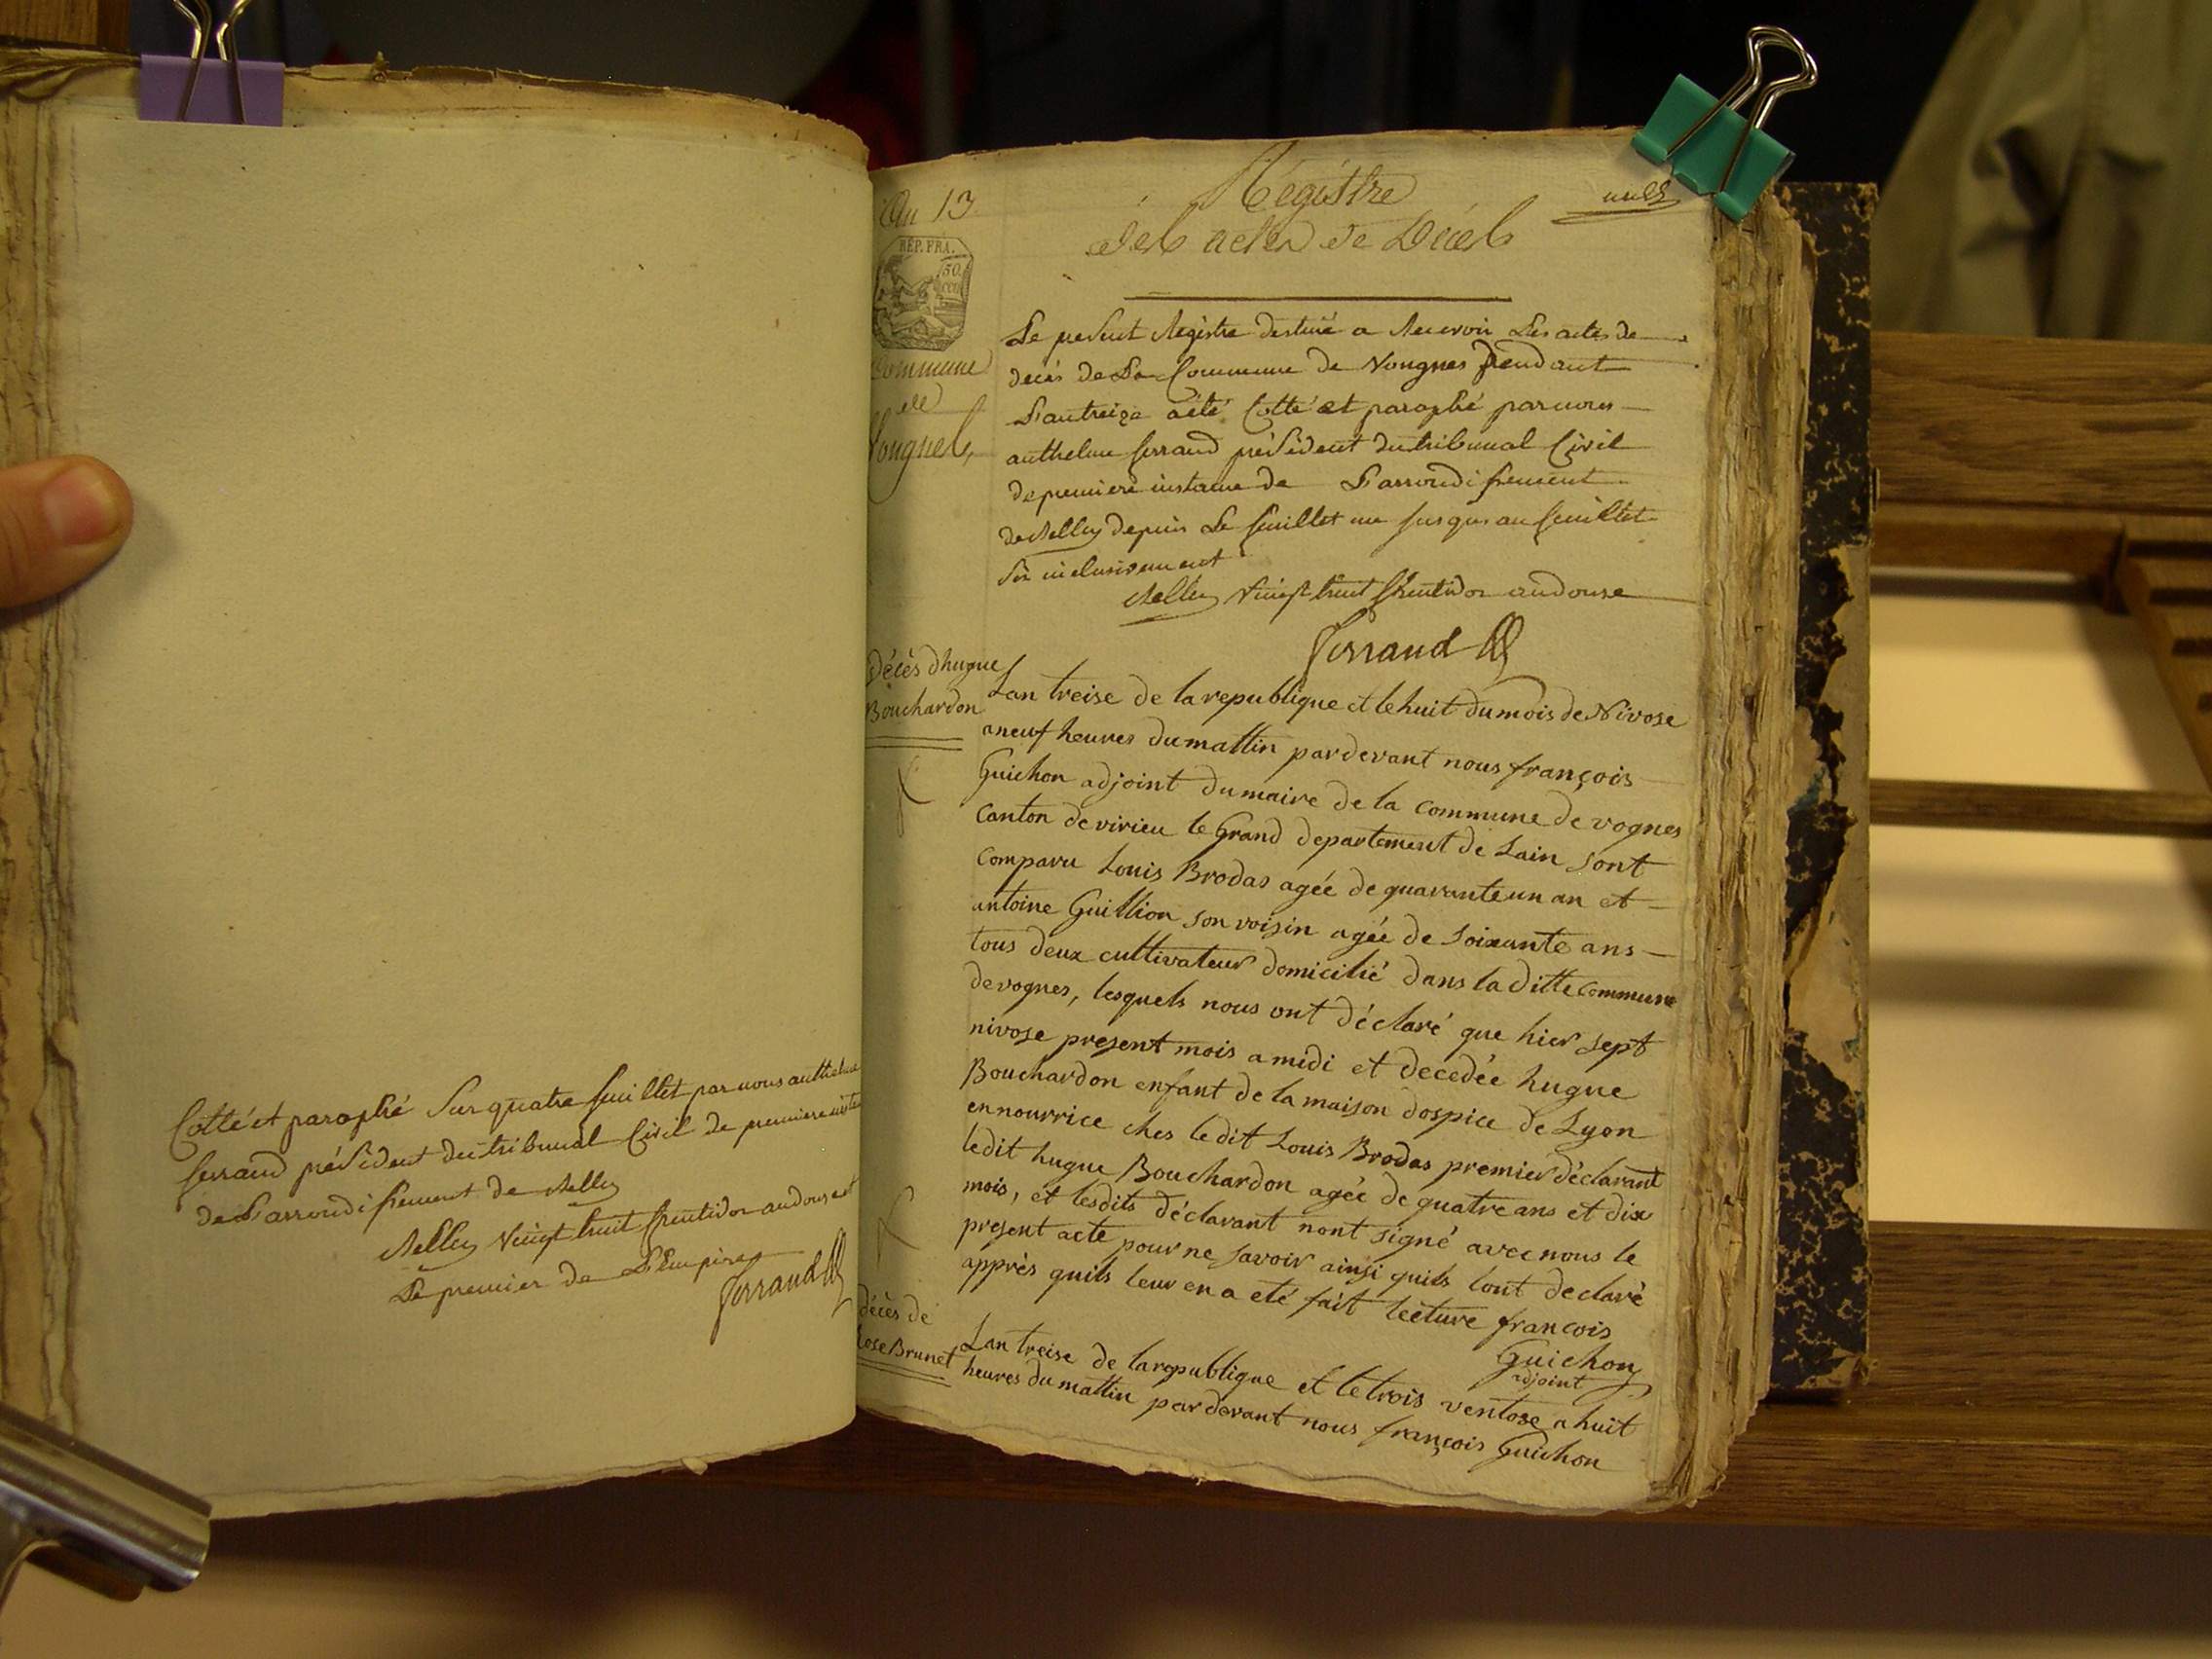 Cotté et paraphé Sur quatre feuillet par nous anthelme
ferrand président du tribunal Civil de premiere insta
de L'arrondissement de Belley
Belley Vingt huit fructidor an douze et
Le premier de L'Empire
ferrand
An 13
Régistre
des actes de Décès
REP. FRA.
50
CEN
Commune
de
Vongnes,
Le present Régistre destiné a Recevoir Les actes de
decés de La Commune de Vongnes pendant
L'an treize a été Cotté et paraphé par nous
anthelme ferrand président du tribunal Civil
de premiere instance de L'arrondissement
de Belley depuis Le feuillet un jusques au feuillet
Six inclusivement
Belley Vingt huit fructidor an douze
ferrand
Décès dhugue
Bouchardon
Lan treise de la republique et le huit du mois de Nivose
a neuf heures du mattin par devant nous françois
Guichon adjoint du maire de la commune de vognes
Canton de virieu le Grand departement de Lain sont
comparu Louis Brodas agée de quarante un an et
antoine Guillion son voisin agée de soixante ans
tous deux cultivateur domicilié dans la ditte commune
de vognes, lesquels nous ont déclaré que hier sept
nivose present mois a midi et decedée hugue
Bouchardon enfant de la maison dospice de Lyon
en nourrice ches le dit Louis Brodas premier déclarant
ledit hugue Bouchardon agée de quatre ans et dix
mois, et lesdits déclarant nont signé avec nous le
present acte pour ne savoir ainsi quils lont declaré
apprès quils leur en a eté fait lecture françois
Guichon
adjoint
décès de
Rose Brunet
Lan treise de la republique et le trois ventose a huit
heures du mattin par devant nous françois Guichon